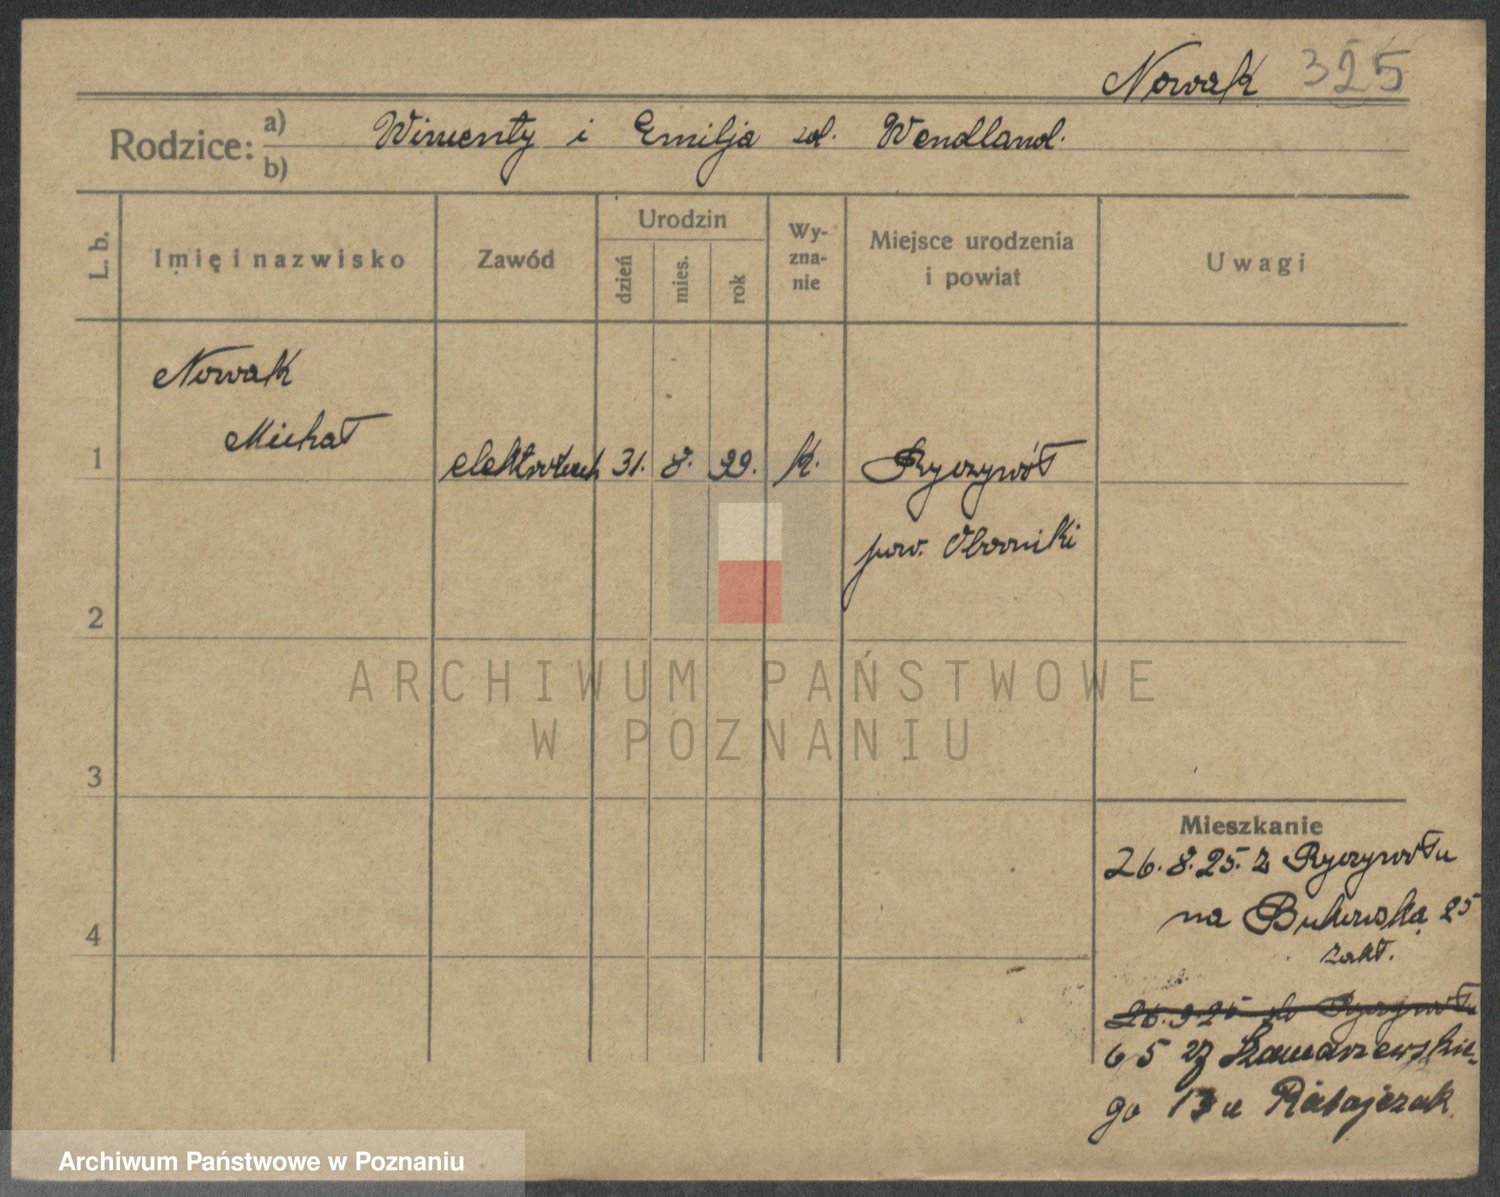 Nowak 325
Rodzice: a) b) Wincenty i Emilja zd. Wendland.
L. b. Imię i nazwisko Zawód Urodzin dzień mies. rok Wy-zna-nie Miejsce urodzenia i powiat Uwagi
Nowak
Michał
1 elektrotech 31. 8. 99. k. Ryczywół
pow. Oborniki
2
ARCHIWUM PAŃSTWOWE
W POZNANIU
3
Mieszkanie
26.8.25. z Ryczywołu
na Bukowska 25
4
zakł.
26.9.25 do Ryczywołu
Szamarzewskie-
go 13 u Ratajczak.
Archiwum Państwowe w Poznaniu